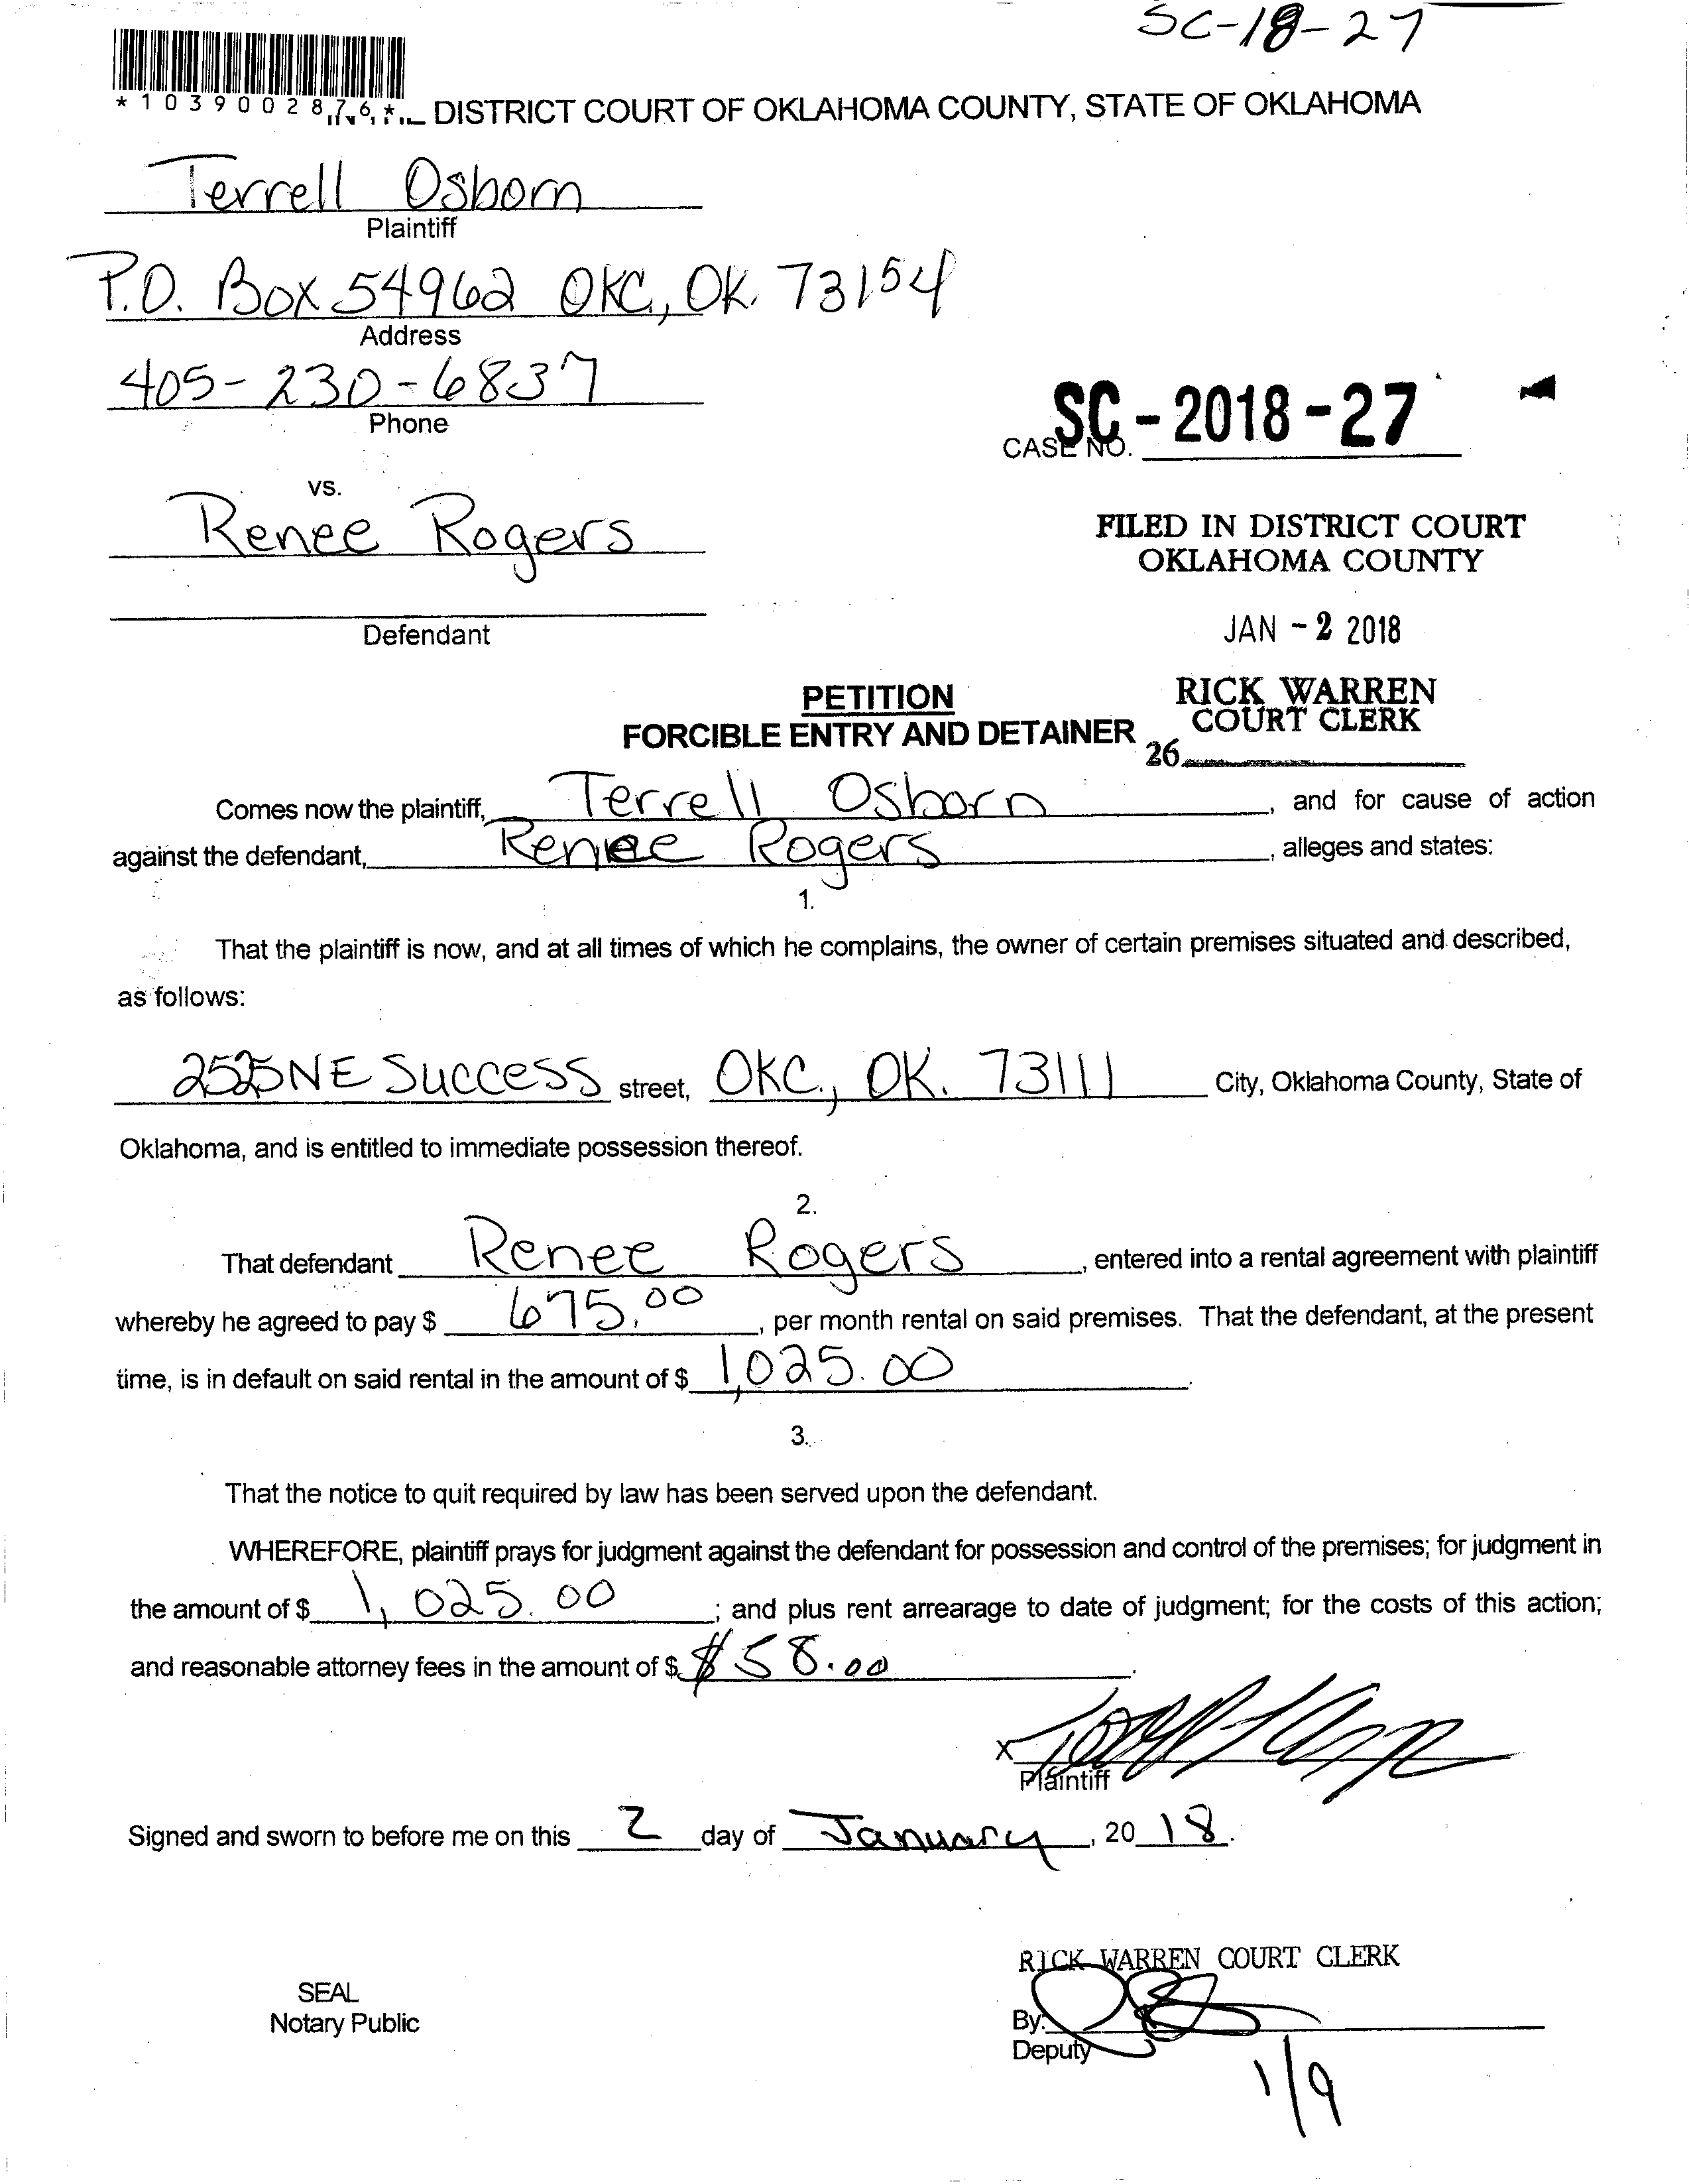 SC-18-27
*1039002876*
DISTRICT COURT OF OKLAHOMA COUNTY, STATE OF OKLAHOMA
Terrell Osborn
Plaintiff
P.O. Box 54962 OKC, OK. 73154
Address
405-230-6837
Phone
CASE NO. SC-2018-27
vs.
Renee Rogers
FILED IN DISTRICT COURT
OKLAHOMA COUNTY
Defendant
JAN -2 2018
PETITION
RICK WARREN
COURT CLERK
FORCIBLE ENTRY AND DETAINER
26
Comes now the plaintiff, Terrell Osborn, and for cause of action
against the defendant, Renee Rogers, alleges and states:
1.
That the plaintiff is now, and at all times of which he complains, the owner of certain premises situated and described,
as follows:
2525 NE Success street, OKC., OK. 73111 City, Oklahoma County, State of
Oklahoma, and is entitled to immediate possession thereof.
2.
That defendant Renee Rogers, entered into a rental agreement with plaintiff
whereby he agreed to pay $ 675.00, per month rental on said premises. That the defendant, at the present
time, is in default on said rental in the amount of $ 1,025.00.
3.
That the notice to quit required by law has been served upon the defendant.
WHEREFORE, plaintiff prays for judgment against the defendant for possession and control of the premises; for judgment in
the amount of $ 1,025.00; and plus rent arrearage to date of judgment; for the costs of this action;
and reasonable attorney fees in the amount of $ $58.00.
X
Plaintiff
Signed and sworn to before me on this 2 day of January, 2018.
RICK WARREN COURT CLERK
SEAL
Notary Public
By:
Deputy
1/9